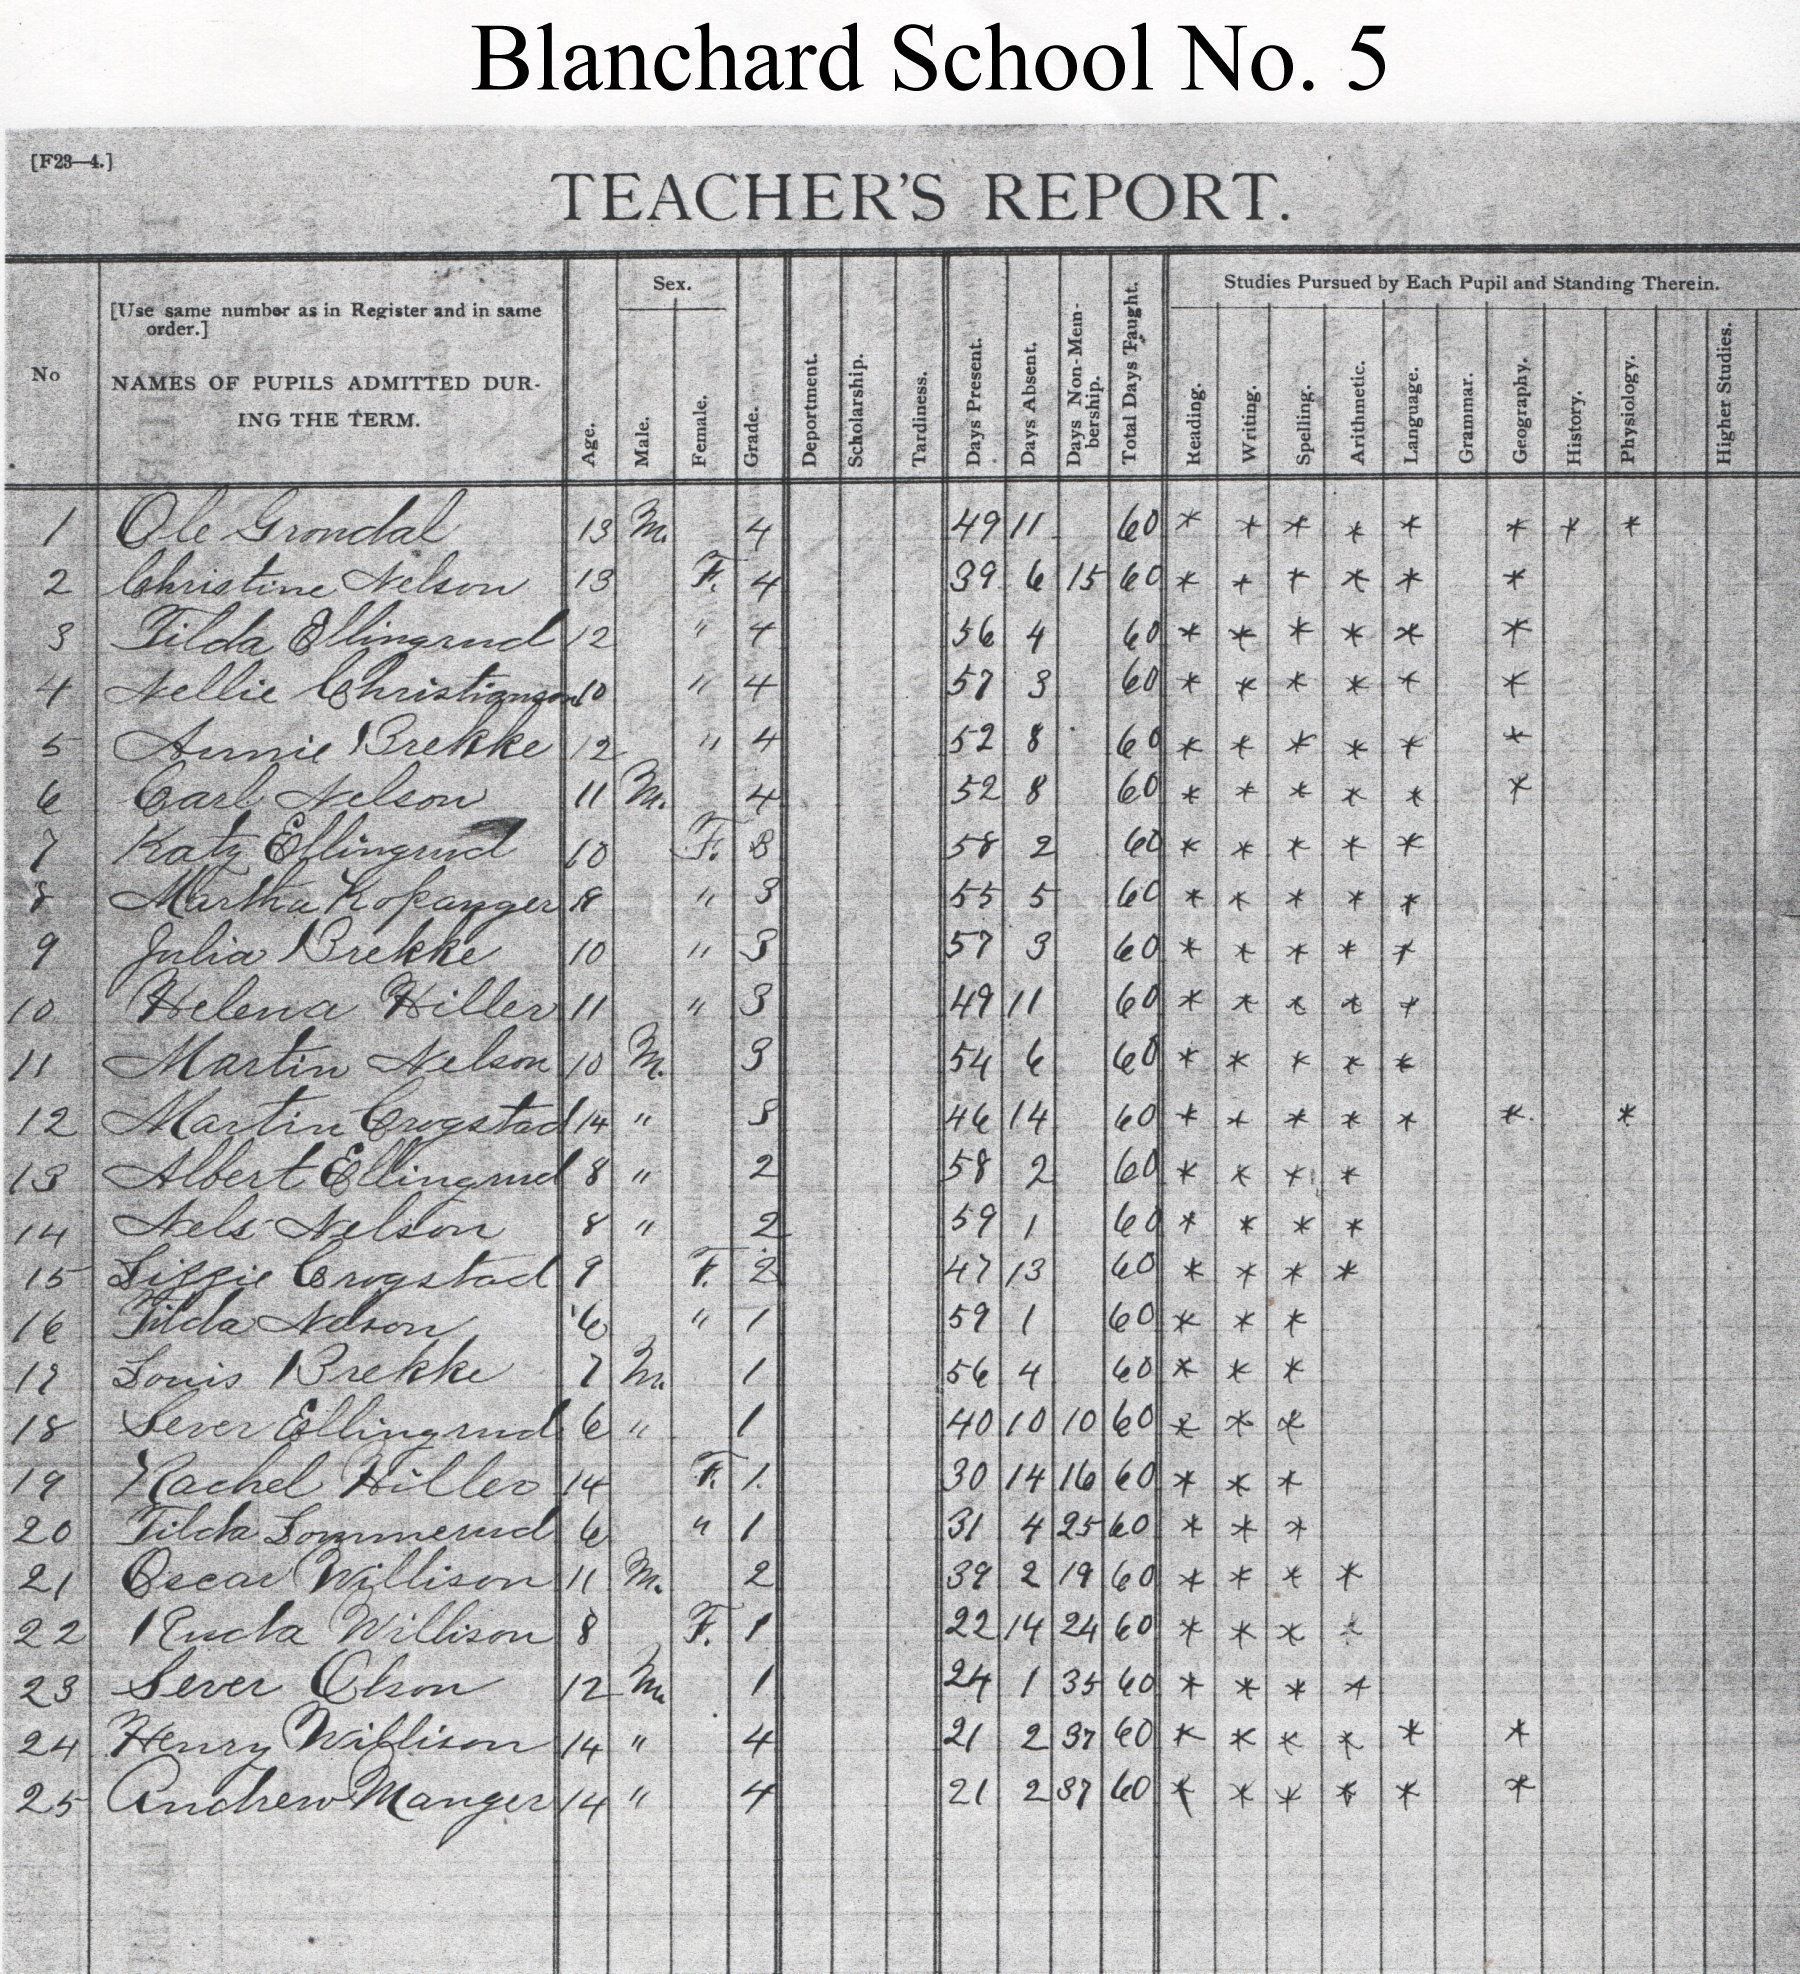 Blanchard School No. 5
[F23—4.]
TEACHER'S REPORT.
No
[Use same number as in Register and in same order.]
NAMES OF PUPILS ADMITTED DUR-
ING THE TERM.
Age.
Sex.
Male.
Female.
Grade.
Deportment.
Scholarship.
Tardiness.
Days Present.
Days Absent.
Days Non-Mem-
bership.
Total Days Taught.
Studies Pursued by Each Pupil and Standing Therein.
Reading.
Writing.
Spelling.
Arithmetic.
Language.
Grammar.
Geography.
History.
Physiology.
Higher Studies.
1 Ole Grondal 13 M. 4 49 11 60 * * * * * * * *
2 Christine Nelson 13 F. 4 39 6 15 60 * * * * * *
3 Tilda Ellingrud 12 " 4 56 4 60 * * * * * *
4 Nellie Christianson 10 " 4 57 3 60 * * * * * *
5 Annie Brekke 12 " 4 52 8 60 * * * * * *
6 Carl Nelson 11 M. 4 52 8 60 * * * * * *
7 Katy Ellingrud 10 F. 3 58 2 60 * * * * *
8 Martha Kopanger " 3 55 5 60 * * * * *
9 Julia Brekke 10 " 3 57 3 60 * * * * *
10 Helena Hiller 11 " 3 49 11 60 * * * * *
11 Martin Nelson 10 M. 3 54 6 60 * * * * *
12 Martin Crogstad 14 " 3 46 14 60 * * * * * * *
13 Albert Ellingrud 8 " 2 58 2 60 * * * *
14 Nels Nelson 8 " 2 59 1 60 * * * *
15 Lizzie Crogstad 9 F. 2 47 13 60 * * * *
16 Tilda Nelson 6 " 1 59 1 60 * * *
17 Louis Brekke 7 M. 1 56 4 60 * * *
18 Sever Ellingrud 6 " 1 40 10 10 60 * * *
19 Rachel Hiller 14 F. 1. 30 14 16 60 * * *
20 Tilda Sommerud 6 " 1 31 4 25 60 * * *
21 Oscar Willison 11 M. 2 39 2 19 60 * * * *
22 Willison 8 F. 1 22 14 24 60 * * * *
23 Sever Olson 12 M. 1 24 1 35 60 * * * *
24 Henry Willison 14 " 4 21 2 37 60 * * * * * *
25 Andrew Manger 14 " 4 21 2 37 60 * * * * * *